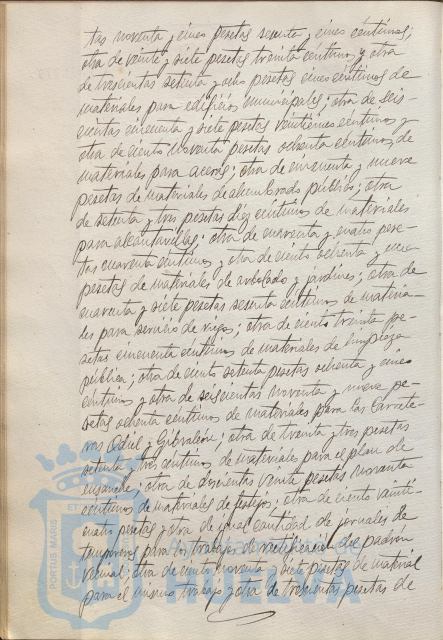 tas noventa y cinco pesetas sesenta y cinco céntimos;
otra de veinte y siete pesetas treinta céntimos y otra
de trescientas setenta y ocho pesetas cinco céntimos de
materiales para edificios municipales; otra de seis-
cientas cincuenta y siete pesetas veinticinco céntimos y
otra de ciento noventa pesetas ochenta céntimos, de
materiales para aceras; otra de cincuenta y nueve
pesetas de materiales de alumbrado público; otra
de setenta y tres pesetas diez céntimos de materiales
para alcantarillas; otra de cuarenta y cuatro pese-
tas cuarenta céntimos y otra de ciento ochenta y cinco
pesetas de materiales de arbolado y jardines; otra de
cuarenta y siete pesetas sesenta céntimos de materia-
les para servicio de riegos; otra de ciento treinta pe-
setas cincuenta céntimos de materiales de limpieza
pública; otra de ciento setenta pesetas ochenta y cinco
céntimos y otra de seiscientas noventa y nueve pe-
setas ochenta céntimos de materiales para las carrete-
ras Odiel y Gibraleón; otra de treinta y tres pesetas
setenta y tres céntimos de materiales para el plan de
ensanche; otra de doscientas veinte pesetas noventa
céntimos de materiales de festejos; otra de ciento veinti-
cuatro pesetas y otra de igual cantidad de jornales de
temporeros para los trabajos de rectificación del padrón
vecinal; otra de ciento noventa y siete pesetas de material
para el mismo trabajo y otra de trescientas pesetas de
PORTUS MARIS
Ayuntamiento de
HUELVA